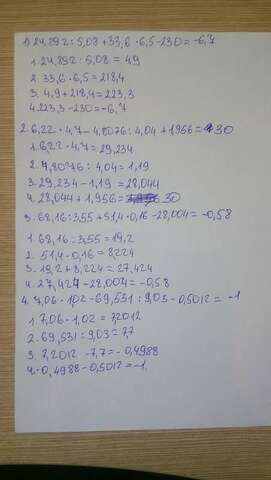 1) 24,892 : 5,08 + 33,6 · 6,5 - 230 = -6,7
1. 24,892 : 5,08 = 4,9
2. 33,6 · 6,5 = 218,4
3. 4,9 + 218,4 = 223,3
4. 223,3 - 230 = -6,7
2. 6,22 · 4,7 - 4,8076 : 4,04 + 1,956 = 30
1. 6,22 · 4,7 = 29,234
2. 4,8076 : 4,04 = 1,19
3. 29,234 - 1,19 = 28,044
4. 28,044 + 1,956 = 30
3. 68,16 : 3,55 + 51,4 · 0,16 - 28,004 = -0,58
1. 68,16 : 3,55 = 19,2
2. 51,4 · 0,16 = 8,224
3. 19,2 + 8,224 = 27,424
4. 27,424 - 28,004 = -0,58
4. 7,06 · 1,02 - 69,531 : 9,03 - 0,5012 = -1
1. 7,06 · 1,02 = 7,2012
2. 69,531 : 9,03 = 7,7
3. 7,2012 - 7,7 = -0,4988
4. -0,4988 - 0,5012 = -1.